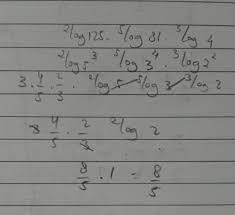 ²log 125 . ⁵log 81 . ³log 4
²log 5³ ⁵log 3⁴ . ³log 2²
3 . 4/5 . 2/3 . ²log 5 ⁵log 3 ³log 2
3 4/5 . 2/3 ²log 2
8/5 . 1 = 8/5